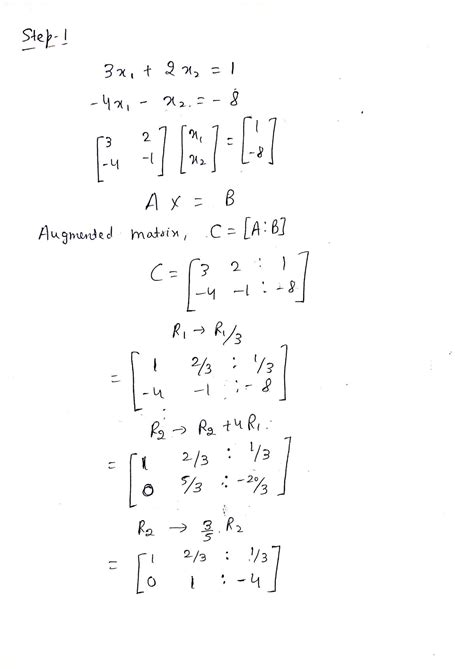 Step-1
3x₁ + 2x₂ = 1
-4x₁ - x₂ = -8
[3 2 [x₁ = [1
-4 -1] x₂] -8]
A X = B
Augmented matrix, C = [A:B]
C = [3 2 : 1
-4 -1 : -8]
R₁ → R₁/3
= [1 2/3 : 1/3
-4 -1 : -8]
R₂ → R₂ + 4R₁
= [1 2/3 : 1/3
0 5/3 : -20/3]
R₂ → 3/5 . R₂
= [1 2/3 : 1/3
0 1 : -4]